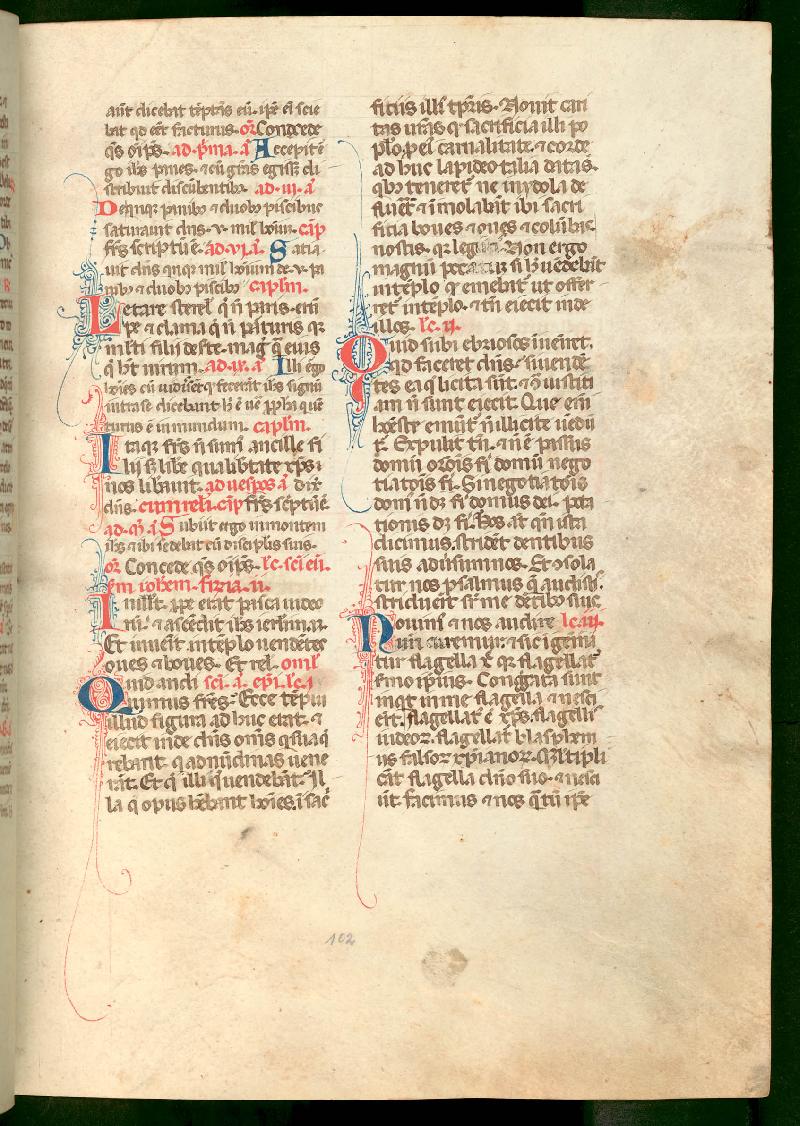 aut dicebat tēptās eū. ip̄e eī scie
bat qd eēt facturus. or̄ Concede
qs̄ oīps̄. ad p̄ma. a Accepit ē
go ih̄s panes. ⁊ cū gr̄as egiss̄ di
stribuit discūbentib. ad. iii. a
Deīnqꝫ panibꝫ ⁊ duobꝫ piscibus
satiauit dn̄s. v. mil̄ hoīm. cap̄
fr̄s scriptū ē. ad. vi. a. Satia
uit dn̄s qinqꝫ mil̄ hoīuim de. v. pa
nibꝫ ⁊ duobꝫ piscibꝫ capl̄m.
Letare sterel̄ q̄ n̄ paris. erū
pe ⁊ clama q̄ n̄ parturis qꝛ
ml̄ti filii des̄te. mag̃ q̄ eius
q̄ h̄t uirum. ad. ix. a Illi ḡo
hoīes cū uidiss̄et q̄ fecerat ih̄s signū
intra se dicebant h̄ ē ue pp̄ha qui uē
turus ē in mundum. capl̄m.
Itaqꝫ fr̄s n̄ sum̄ ancille fi
lii sꝫ lib̄e qua lib̄tate xp̄s.
nos libauit. ad uesp̄os a dix̄
dn̄s. cum reli. cap̄ fr̄s sc̄ptū ē.
ad. m̄. a Subiit ergo in montem
ih̄s ⁊ ibi sedebat cū discipl̄is suis.
or̄ Concede qs̄ oīps̄. lc̄. sc̄i eū.
s̄m ioh̄em. fīria. ii.
In ill̄. t. ꝓpe erat pasca iudeo
rū. ⁊ ascēdit ih̄s ierl̄im. ⁊.
Et inuēit in tēplo uendētes
oues ⁊ boues. Et rel. omīl
Quid audi sc̄i. a. ep̄i. lc̄. i
uimus fr̄s. Ecce tēplū
illud figura adhuc erat. ⁊
eiecit inde dn̄s om̄s q̄ sua q̄
rebant. q̄ ad nūdinas uene
rāt. Et q̄ illi q̄ uendebāt. Il
la q̄ opus h̄ebant hoīes. ī sac̄
ficiis illi tp̄ris. Nouit cari
tas ur̄as qꝛ sacrificia illi po
plo. ꝓ ei carnalitate. ⁊ corde
adhuc lapideo talia data s̄.
qbꝫ teneretʳ ne in ydola de
fluēt ⁊ īmolabāt ibi sacri
ficia boues ⁊ oues ⁊ colūbas.
nostis. qꝛ legistis. Non ergo
magnū peccatū si h̄ uēdebāt
in tēplo q̄ emebāt ut offer
rēt in tēplo. ⁊ tn̄ eiecit inde
illos. lc̄. ii.
Quid si ibi ebriosos īueīret.
qd faceret dn̄s. si uendē
tes ea q̄ licita sūt. ⁊ ꝯͣ iustici
am n̄ sunt eiecit. Que eni
hoēste emūt n̄ illicite uedū
t. Expulit tn̄. ⁊ n̄ ē passus
domū or̄ois fi domū nego
tiatois fi. Si negotiatois
domꝯ n̄ dꝫ fi domus dei. pota
tionis dꝫ fi. Nos at qn̄ ista
dicimus. strīdēt dentibus
suis aduersū nos. Et ꝯsola
tur nos psalmus q̄ audistis.
striduerūt sꝯ me dētibꝫ suis.
Nouimꝯ ⁊ nos audire lc̄. iii.
un̄ curemur. ⁊ si c̄ igemi
tur flagella xͥ. qꝛ flagellatʳ
sermo ip̄ius. Congregata sunt
inqt in me flagella ⁊ nesci
erūt. flagellatʳ ē xp̄s. flagellis
iudeoꝝ. flagellatʳ blasphem
iis falsoꝝ xp̄ianoꝝ. Ml̄tipli
cāt flagella dn̄o suo. ⁊ nesci
ūt. faciamus ⁊ nos q̄tū ip̄e
102